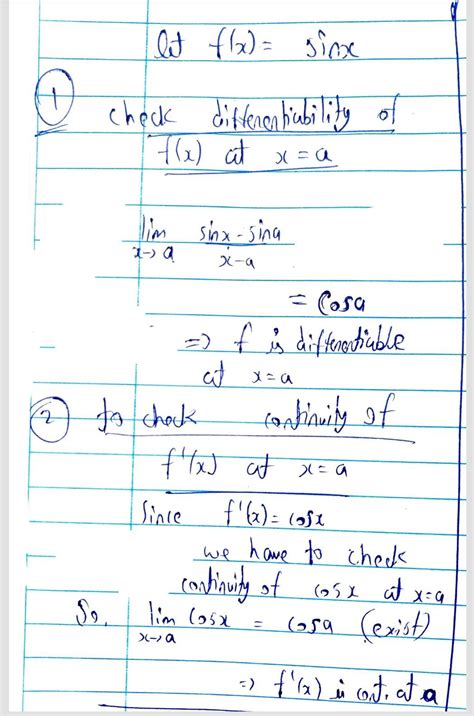 let f(x) = sinx
① check differentiability of
f(x) at x = a
lim x→a (sinx - sina)/(x-a)
= Cosa
=> f is differentiable
at x=a
② to check continuity of
f'(x) at x=a
Since f'(x) = cosx
we have to check
continuity of cosx at x=a
So, lim x→a Cosx = cosa (exist)
=> f'(x) is cont. at a